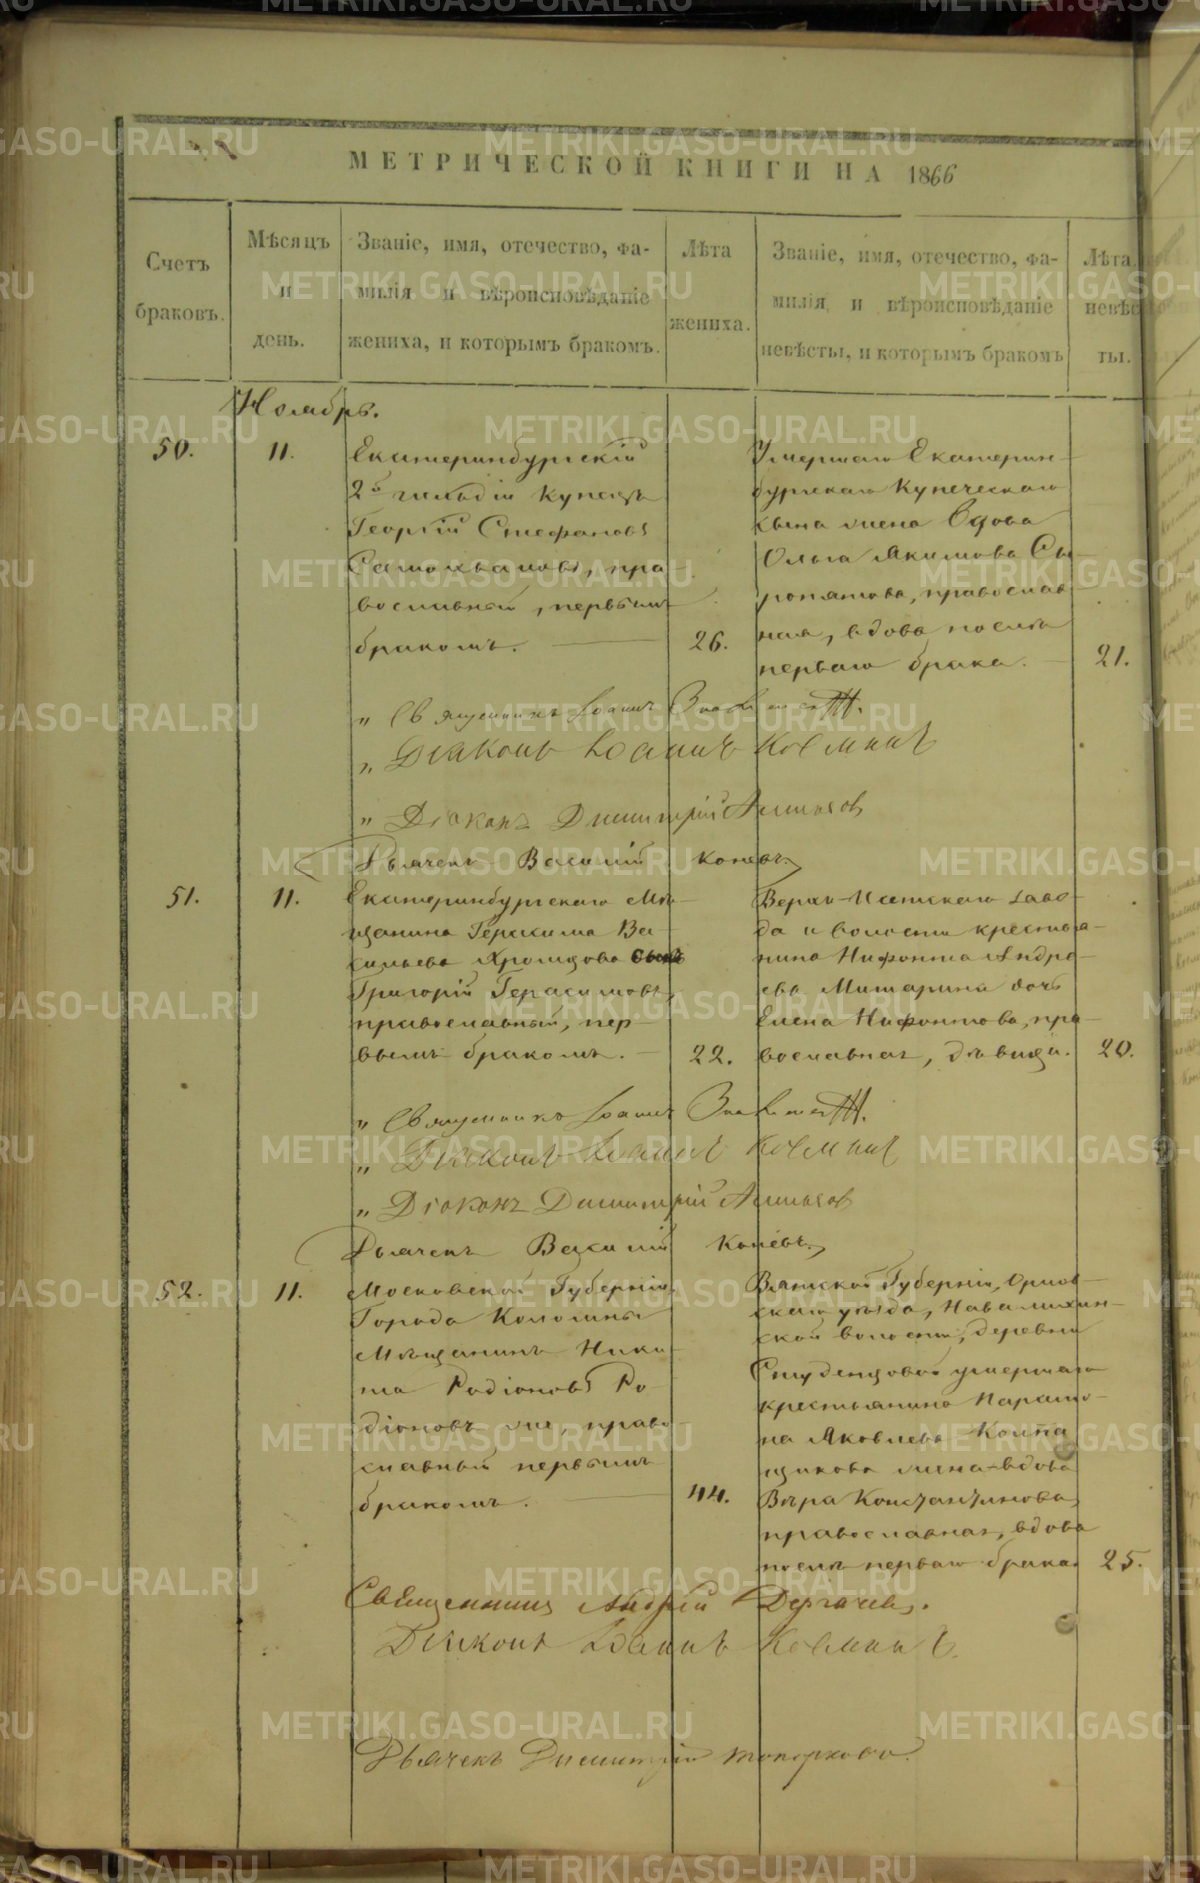 МЕТРИЧЕСКОЙ КНИГИ НА 1866
Счетъ браковъ.
Мѣсяцъ и день.
Званіе, имя, отечество, фа-
милія и вѣроисповѣданіе
жениха, и которымъ бракомъ.
Лѣта жениха.
Званіе, имя, отечество, фа-
милія и вѣроисповѣданіе
невѣсты, и которымъ бракомъ
Лѣта невѣс
ты.
Ноябрь.
50.
11.
Екатеринбургскій
2й гильдіи купецъ
Георгій Стефановъ
Самохваловъ, пра-
вославный, первымъ
бракомъ.
26.
Умершаго Екатерин-
бургскаго купеческаго
сына жена вдова
Ольга Якимова Сы-
ропятова, православ-
ная, вдова послѣ
перваго брака.
21.
„ Священникъ Іоаннъ Знаменскій.
„ Діаконъ Іоаннъ Косминъ
„ Діаконъ Димитрій
Дьячекъ Василій Коневъ.
51.
11.
Екатеринбургскаго мѣ-
щанина Герасима Ва-
сильева Хромцова сынъ
Григорій Герасимовъ,
православный, пер-
вымъ бракомъ.
22.
Верхъ-Исетскаго заво-
да и волости крестья-
нина Нифонта Андре-
ева Митарина дочь
Елена Нифонтова, пра-
вославная, дѣвица.
20.
„ Священникъ Іоаннъ Знаменскій.
„ Діаконъ Іоаннъ Косминъ
„ Діаконъ Димитрій
Дьячекъ Василій Коневъ.
52.
11.
Московской Губерніи,
Города Коломны
мѣщанинъ Ники-
та Родіоновъ Ро-
діоновъ же, право-
славный первымъ
бракомъ.
44.
Вятской Губерніи, Орлов-
скаго уѣзда,
ской волости, деревни
Студенцовой умершаго
крестьянина Парамо-
на Яковлева Колпа
щикова жена-вдова
Вѣра Константинова,
православная, вдова
послѣ перваго брака.
25.
Священникъ Андрей Дергачевъ.
Діаконъ Іоаннъ Косминъ.
Дьячекъ Димитрій Топорковъ.
METRIKI.GASO-URAL.RU